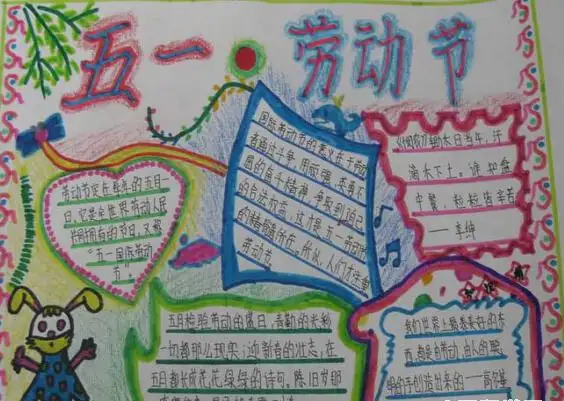 五一·劳动节
劳动节定在每年的五月一
日。它是全世界劳动人民
共同拥有的节日，又称
“五一国际劳动
节”
国际劳动节的意义在于劳动
者通过斗争，用顽强、英勇不
屈的奋斗精神，争取到自己
的合法权益
的精髓所在。所以，人们才注重
劳动节
日当年，汗
滴禾下土。谁知盘
中餐，粒粒皆辛苦
——李绅
五月检验劳动的盛日，青勤的米粉
一切都那么现实；迎新春的壮志，在
五月都长成花花绿绿的诗句。陈旧岁那
我们世界上最美好的东
西，都是由劳动、由人的聪
明的手创造出来的——高尔基